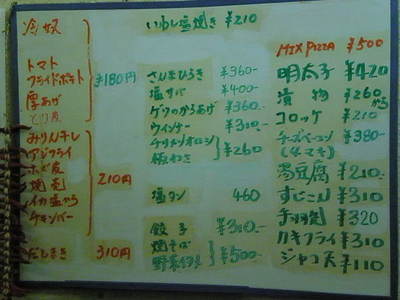 冷奴
トマト
フライドポテト
厚あげ
とり皮
¥180円
みりん干し
アジフライ
焼売
イカ塩から
チキンバー
210円
だしまき 310円
いわし塩焼き ¥210
さんまひらき ¥360-
塩サバ ¥400-
ゲソのからあげ ¥360-
ウインナー ¥310-
チリメンオロシ
板わさ
¥260
塩タン 460
餃子 ¥310-
焼そば
野菜イタメ
¥500-
MIX PIZZA ¥500
明太子 ¥420
漬物 ¥260から
コロッケ ¥210
チーズベーコン ¥380-
湯豆腐 ¥210-
すじこん ¥310
手羽焼 ¥320
カキフライ ¥310
ジャコ天 ¥110